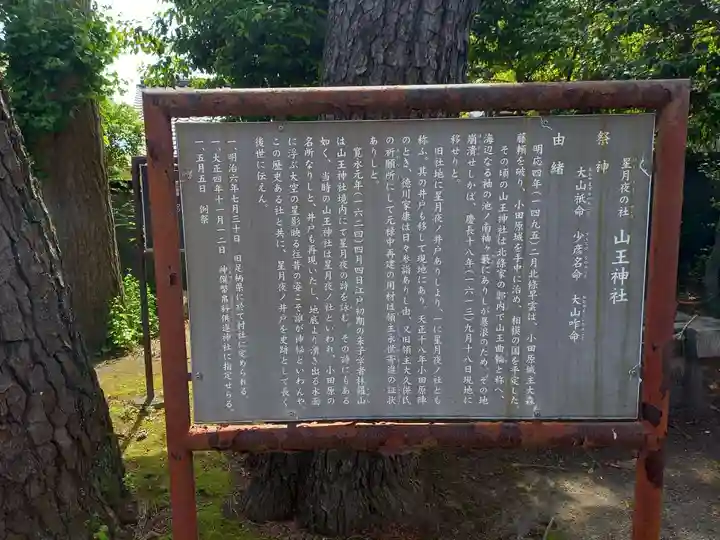 星月夜の社 山王神社
祭神 大山祇命 少彦名命 大山咋命
由緒
明応四年(一四九五)二月北條早雲は、小田原城主大森
藤頼を破り、小田原城を手中に治め、相模の国を平定した
その頃の山王神社は北條家の郭内で山王曲輪と称へ、
海辺なる袖の池ノ南袖ヶ藪にありしが暴浪のため、その地
崩潰せしかば、慶長十八年(一六一三)九月十八日現地に
移せりと。
旧社地に星月夜ノ井戸ありしより、一に星月夜ノ社とも
称ふ。其の井戸も移して現地にあり、天正十八年小田原陣
のとき、徳川家康は日々参詣ありし由、又旧領主大久保氏
の祈願所にして元禄中再建の用材は領主永世寄進の証状
ありしと。
寛永元年(一六二四)四月四日江戸初期の朱子学者林羅山
は山王神社境内にて星月夜の詩を詠む。その詩にもある
如く、当時の山王神社は星月夜ノ社といわれ、小田原の
名所なりしと、井戸も再現いたし、地底より湧き出る水面
に浮ぶ大空の星影映る往昔の姿こそ誰が神秘といわんや
この歴史ある社と共に、星月夜ノ井戸を史跡として長く
後世に伝えん。
一、明治六年七月三十日 旧足柄県に於て村社に定めらる。
一、大正四年十一月十二日 神饌幣帛料供進神社に指定せらる。
一、五月五日 例祭